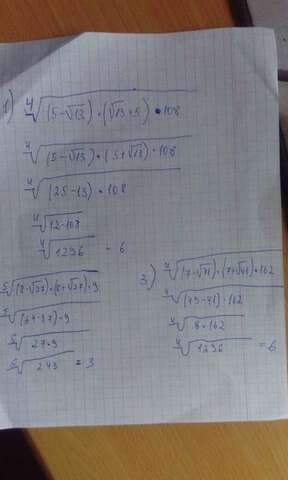 1) ∜((5-√13)·(√13+5)·108)
∜((5-√13)·(5+√13)·108)
∜((25-13)·108)
∜(12·108)
∜1296 = 6
⁵√((8-√37)·(8+√37)·9)
⁵√((64-37)·9)
⁵√(27·9)
⁵√243 = 3
3) ∜((7-√41)·(7+√41)·162)
∜((49-41)·162)
∜(8·162)
∜1296 = 6